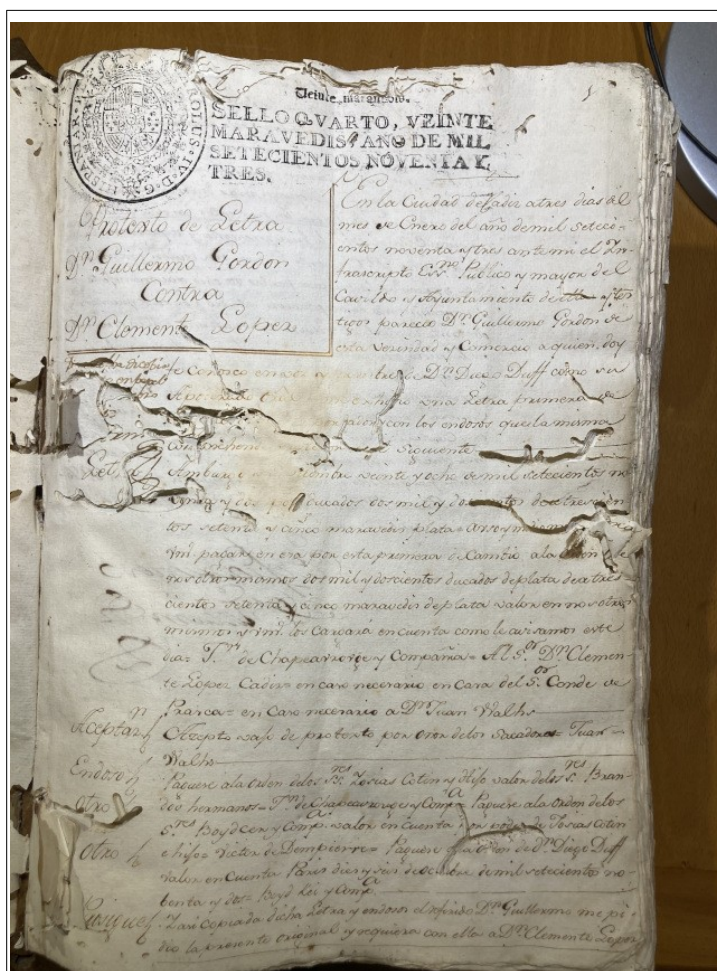 CAROLUS IV D G HISPANIAR R
Veinte maravedis.
SELLO QVARTO, VEINTE
MARAVEDIS, AÑO DE MIL
SETECIENTOS NOVENTA Y
TRES.
Protexto de Letra
Dn. Guillermo Gordon
Contra
Dn. Clemente Lopez
En la Ciudad de Cadiz a tres dias del
mes de Enero del año de mil seteci-
entos noventa y tres ante mi el In-
frascripto Essno. Publico y mayor del
Cavildo y Ayuntamiento de ella y tes-
tigos parecio Dn. Guillermo Gordon de
esta vecindad y Comercio a quien doy
fe conozco en voz y nombre de Dn. Diego Duff como su
Apoderado una Letra primera de
con los endosos que la misma
siguiente
Amburgo veinte y ocho de mil setecientos no
venta y dos por ducados dos mil y doscientos de a trescien
tos setenta y cinco maravedis plata
Vm. pagará en era por esta primera de Cambio a la orden de
nosotros mismos dos mil y doscientos ducados de plata de a tres
cientos setenta y cinco maravedis de plata valor en nosotros
mismos y Vm. los Cargará en cuenta como le avisamos este
dia= de Chapearrovge y Compañia= Al Sor. Dn. Clemen-
te Lopez Cadiz= en caso necesario en Casa del Sor. Conde de
Pranca= en Caso necesario a Dn. Juan Walhs
Aceptan Acepto vajo de protexto por oron de los Sacadores= Juan
Walhs
Endoso Paguese a la orden de los Sres. Josias Coten y Hijo valor de los Sres. Bran
deo hermanos= de Chapearrovge y Compa.
otro Paguese a la orden de los
Sres. Boyd Cer y Compa. valor en cuenta por poder de Josias Coten
e hijo= Victor de Dompierre=
otro Paguese a la orden de Dn. Diego Duff
valor en Cuenta Paris diez y seis de de mil setecientos no-
benta y dos= Boyd Ker y Compa.
Prosigue Y asi copiada dicha Letra y endosos el referido Dn. Guillermo me pi-
dio la presente original y requiera con ella a Dn. Clemente Lopez